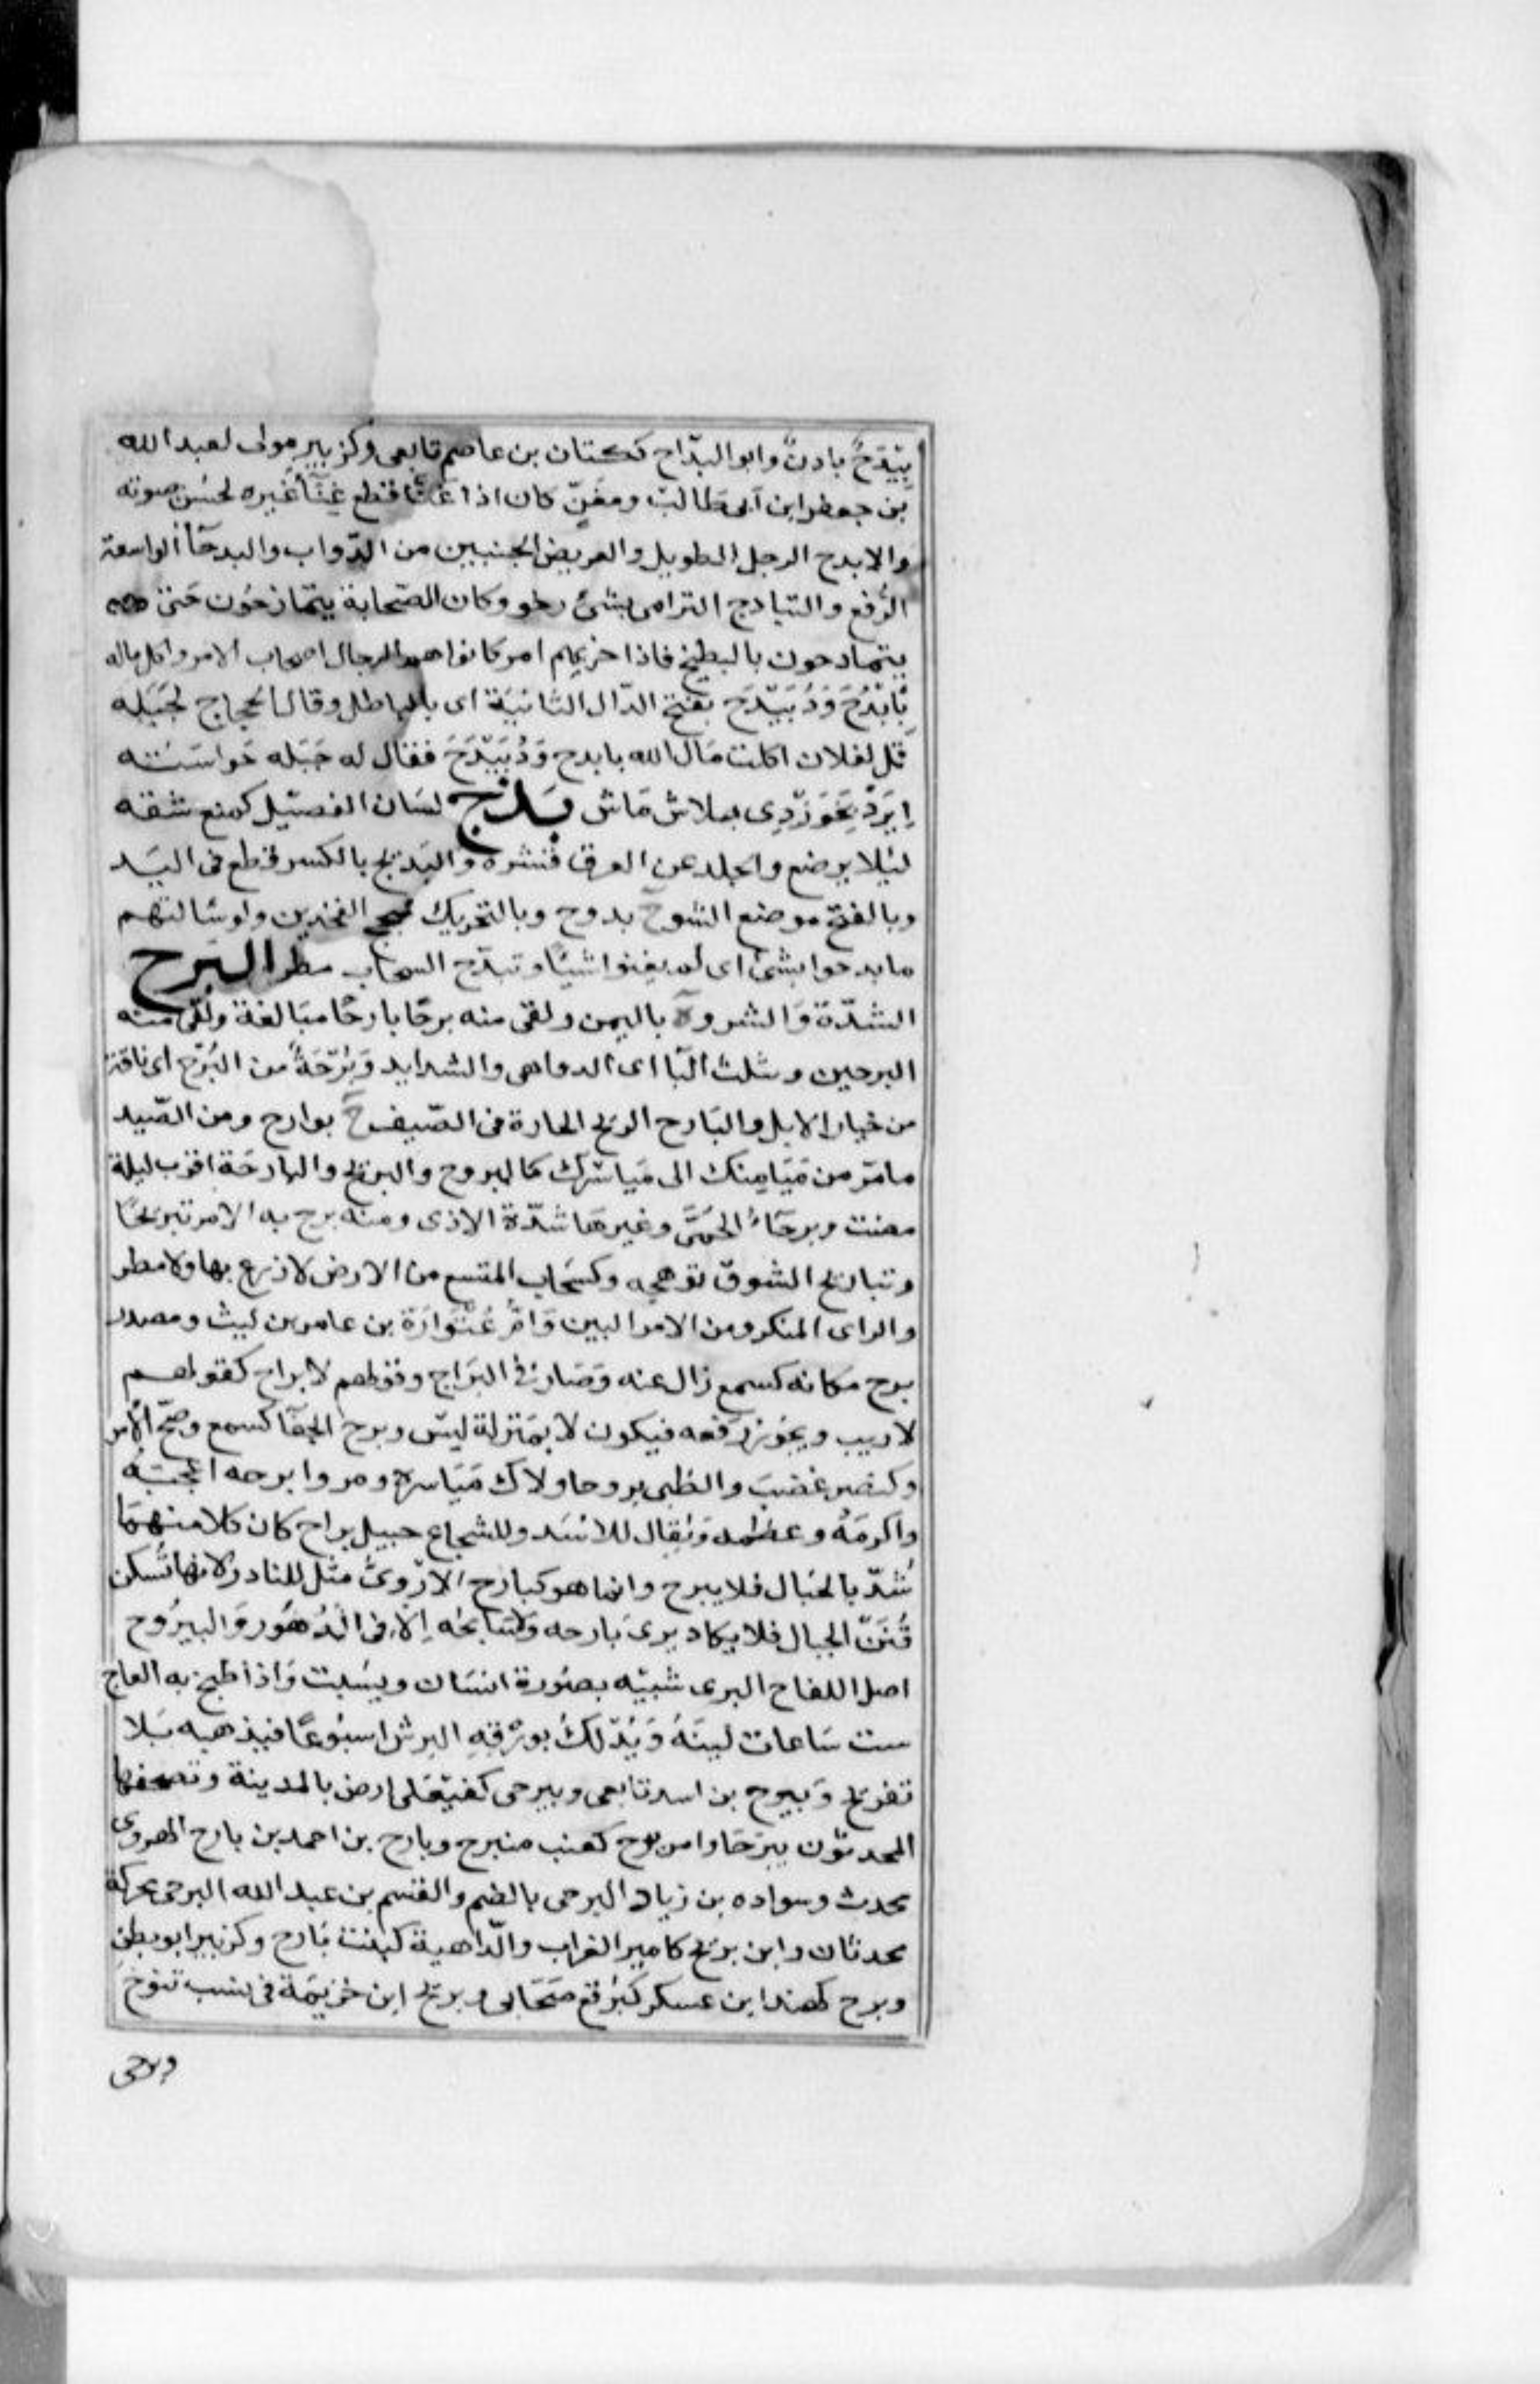 بَيْدَحٌ بادنٌ وابو البدّاح ككتان بن عاصم تابعى وكزبير مولى لعبد الله
بن جعفر ابن ابى طالب ومغنّ كان اذا غنّا قطع غِنَآ غيره لحسن صوته
والابدح الرجل الطويل والعريض الجنبين من الدّواب والبدحآ الواسعة
الرفغ والتبادح الترامى بشئ رخو وكان الصحابة يتمازحون حتى
يتبادحون بالبطيخ فاذا حزبهم امر كانوا هم الرجال اصحاب الامر واكل ماله
بِأَبْدَحَ وَدُبَيْدَحَ بفتح الدّال الثانية اى بالباطل وقال الحجاج لجَبَله
قل لفلان اكلت مال الله بابدح وَدُبَيْدَحَ فقال له جَبَله خواسته
اِيزَدْ بخَوَرْدِى بلاش ماش بذح لسَان الفصيل كمنع شقه
ليلا يرضع والجلد عن العرق قشره والبذح بالكسر قطع فى اليَد
وبالفتح موضع الشق ج بذوح وبالتحريك سحج الفخذين ولو سَالتهم
ما بذحوا بشئ اى لم يغنوا شيئًا وتبذّح السحاب مطر البَرح
الشدّة وَالشر وة باليمن ولقى منه برحًا بارحًا مبَالغة ولقى منه
البرحين وتثلث البآ اى الدواهى والشدايد وَبُرْحَةً من البُرَح اى ناقة
من خيار الابل والبَارح الريح الحارة فى الصّيف ج بوارح ومن الصّيد
ما مرّ من مَيَامِنك الى مَياسرك كالبروح والبريح والبارحَة اقرب ليلة
مضت وبرحَآءُ الحمّى وغيرها شدّة الاذى ومنه برح به الامر تبريحًا
وتباريح الشوق توهجه وكسَحَاب المتسع من الارض لا زرع بها ولا شجر
والراى المنكر ومن الامر البين وَامّ عُتْوَارَة بن عامر بن ليث ومصدر
برح مكانه كسمع زال عنه وصَار فى البَرَاح وقولهم لا براح كقولهم
لا ريب ويجوز رفعه فيكون لا بمَنزلة ليس وبرح الخفآ كسمع وضح الامر
وكنصر غضبَ والظبى بروحا ولاك مَيَاسره ومر وابرحه اعجَبَهُ
واكرمَهُ وعظمه وَيُقال للاسَد وللشجاع حبيل براح كان كلا منهما
شُدّ بالحبَال فلا يبرح وانما هو كبارح الاَرْوىُ مثل للنادر لانها تسكن
قُنَنَ الجبال فلا يكاد يرى بَارحه ولا سَانحه اِلّا فى الدُهُور وَاليبرُوح
اصل اللفاح البرى شبيه بصُورة انسَان ويسْبت وَاذا طبخ به العاج
ست سَاعات لينَهُ وَيُدْلكُ بورقِهِ البرش اسبُوعًا فيذهبه بلا
تقريح وَبيرح بن اسد تابعى وبيرحى كفيعَلى ارض بالمدينة وتصحفها
المحدثون بيرَحَا وامر برح كعنب مبرح وبارح بن احمد بن بارح الهروى
محدث وسواده بن زياد البرحى بالضم والقسم بن عبد الله البرحى محركة
محدثان وابن بريح كامير الغراب والدّاهية كبنت بَارح وكزبير ابو بطن
وبرح كهند ابن عسكر كبُرْقع صَحَابى وبريح ابن خزيمَة فى نسب تنوخ
وبرحى